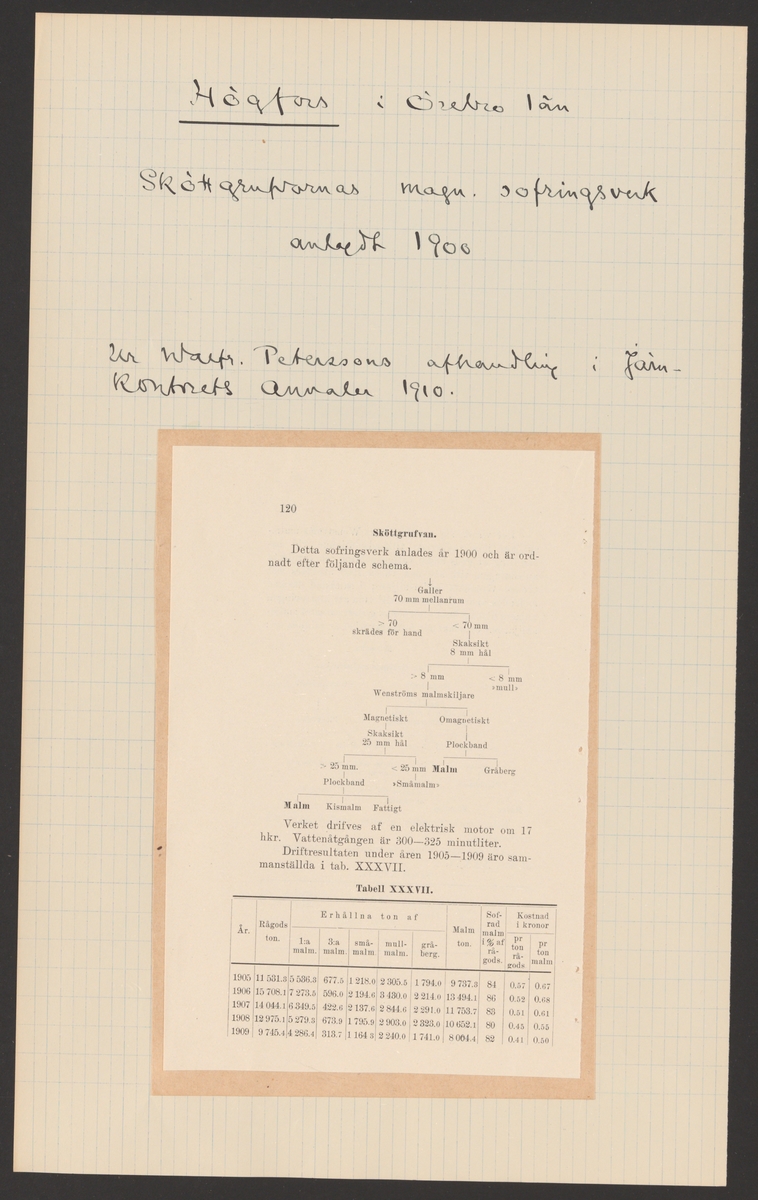 Högfors i Örebro län
Sköttgrufvornas magn. sofringsverk
anlagdt 1900
Ur Walfr. Peterssons afhandling i Järn-
Kontorets Annaler 1910.
120
Sköttgrufvan.
Detta sofringsverk anlades år 1900 och är ord-
nadt efter följande schema.
↓
Galler
70 mm mellanrum
> 70 < 70 mm
skrädes för hand
Skaksikt
8 mm hål
> 8 mm < 8 mm
»mull»
Wenströms malmskiljare
Magnetiskt Omagnetiskt
Skaksikt
25 mm hål Plockband
> 25 mm. < 25 mm Malm Gråberg
Plockband »Småmalm»
Malm Kismalm Fattigt
Verket drifves af en elektrisk motor om 17
hkr. Vattenåtgången är 300—325 minutliter.
Driftresultaten under åren 1905—1909 äro sam-
manställda i tab. XXXVII.
Tabell XXXVII.
År. Rågods ton. Erhållna ton af Malm ton. Sof-rad malm i % af rå-gods. Kostnad i kronor
1:a malm. 3:a malm. små-malm mull-malm. grå-berg. pr ton rå-gods pr ton malm
1905 11 531.3 5 536.3 677.5 1 218.0 2 305.5 1 794.0 9 737.3 84 0.57 0.67
1906 15 708.1 7 273.5 596.0 2 194.6 3 430.0 2 214.0 13 494.1 86 0.52 0.68
1907 14 044.1 6 349.5 422.6 2 137.6 2 844.6 2 291.0 11 753.7 83 0.51 0.61
1908 12 975.1 5 279.3 673.9 1 795.9 2 903.0 2 323.0 10 652.1 80 0.45 0.55
1909 9 745.4 4 286.4 313.7 1 164.3 2 240.0 1 741.0 8 004.4 82 0.41 0.50